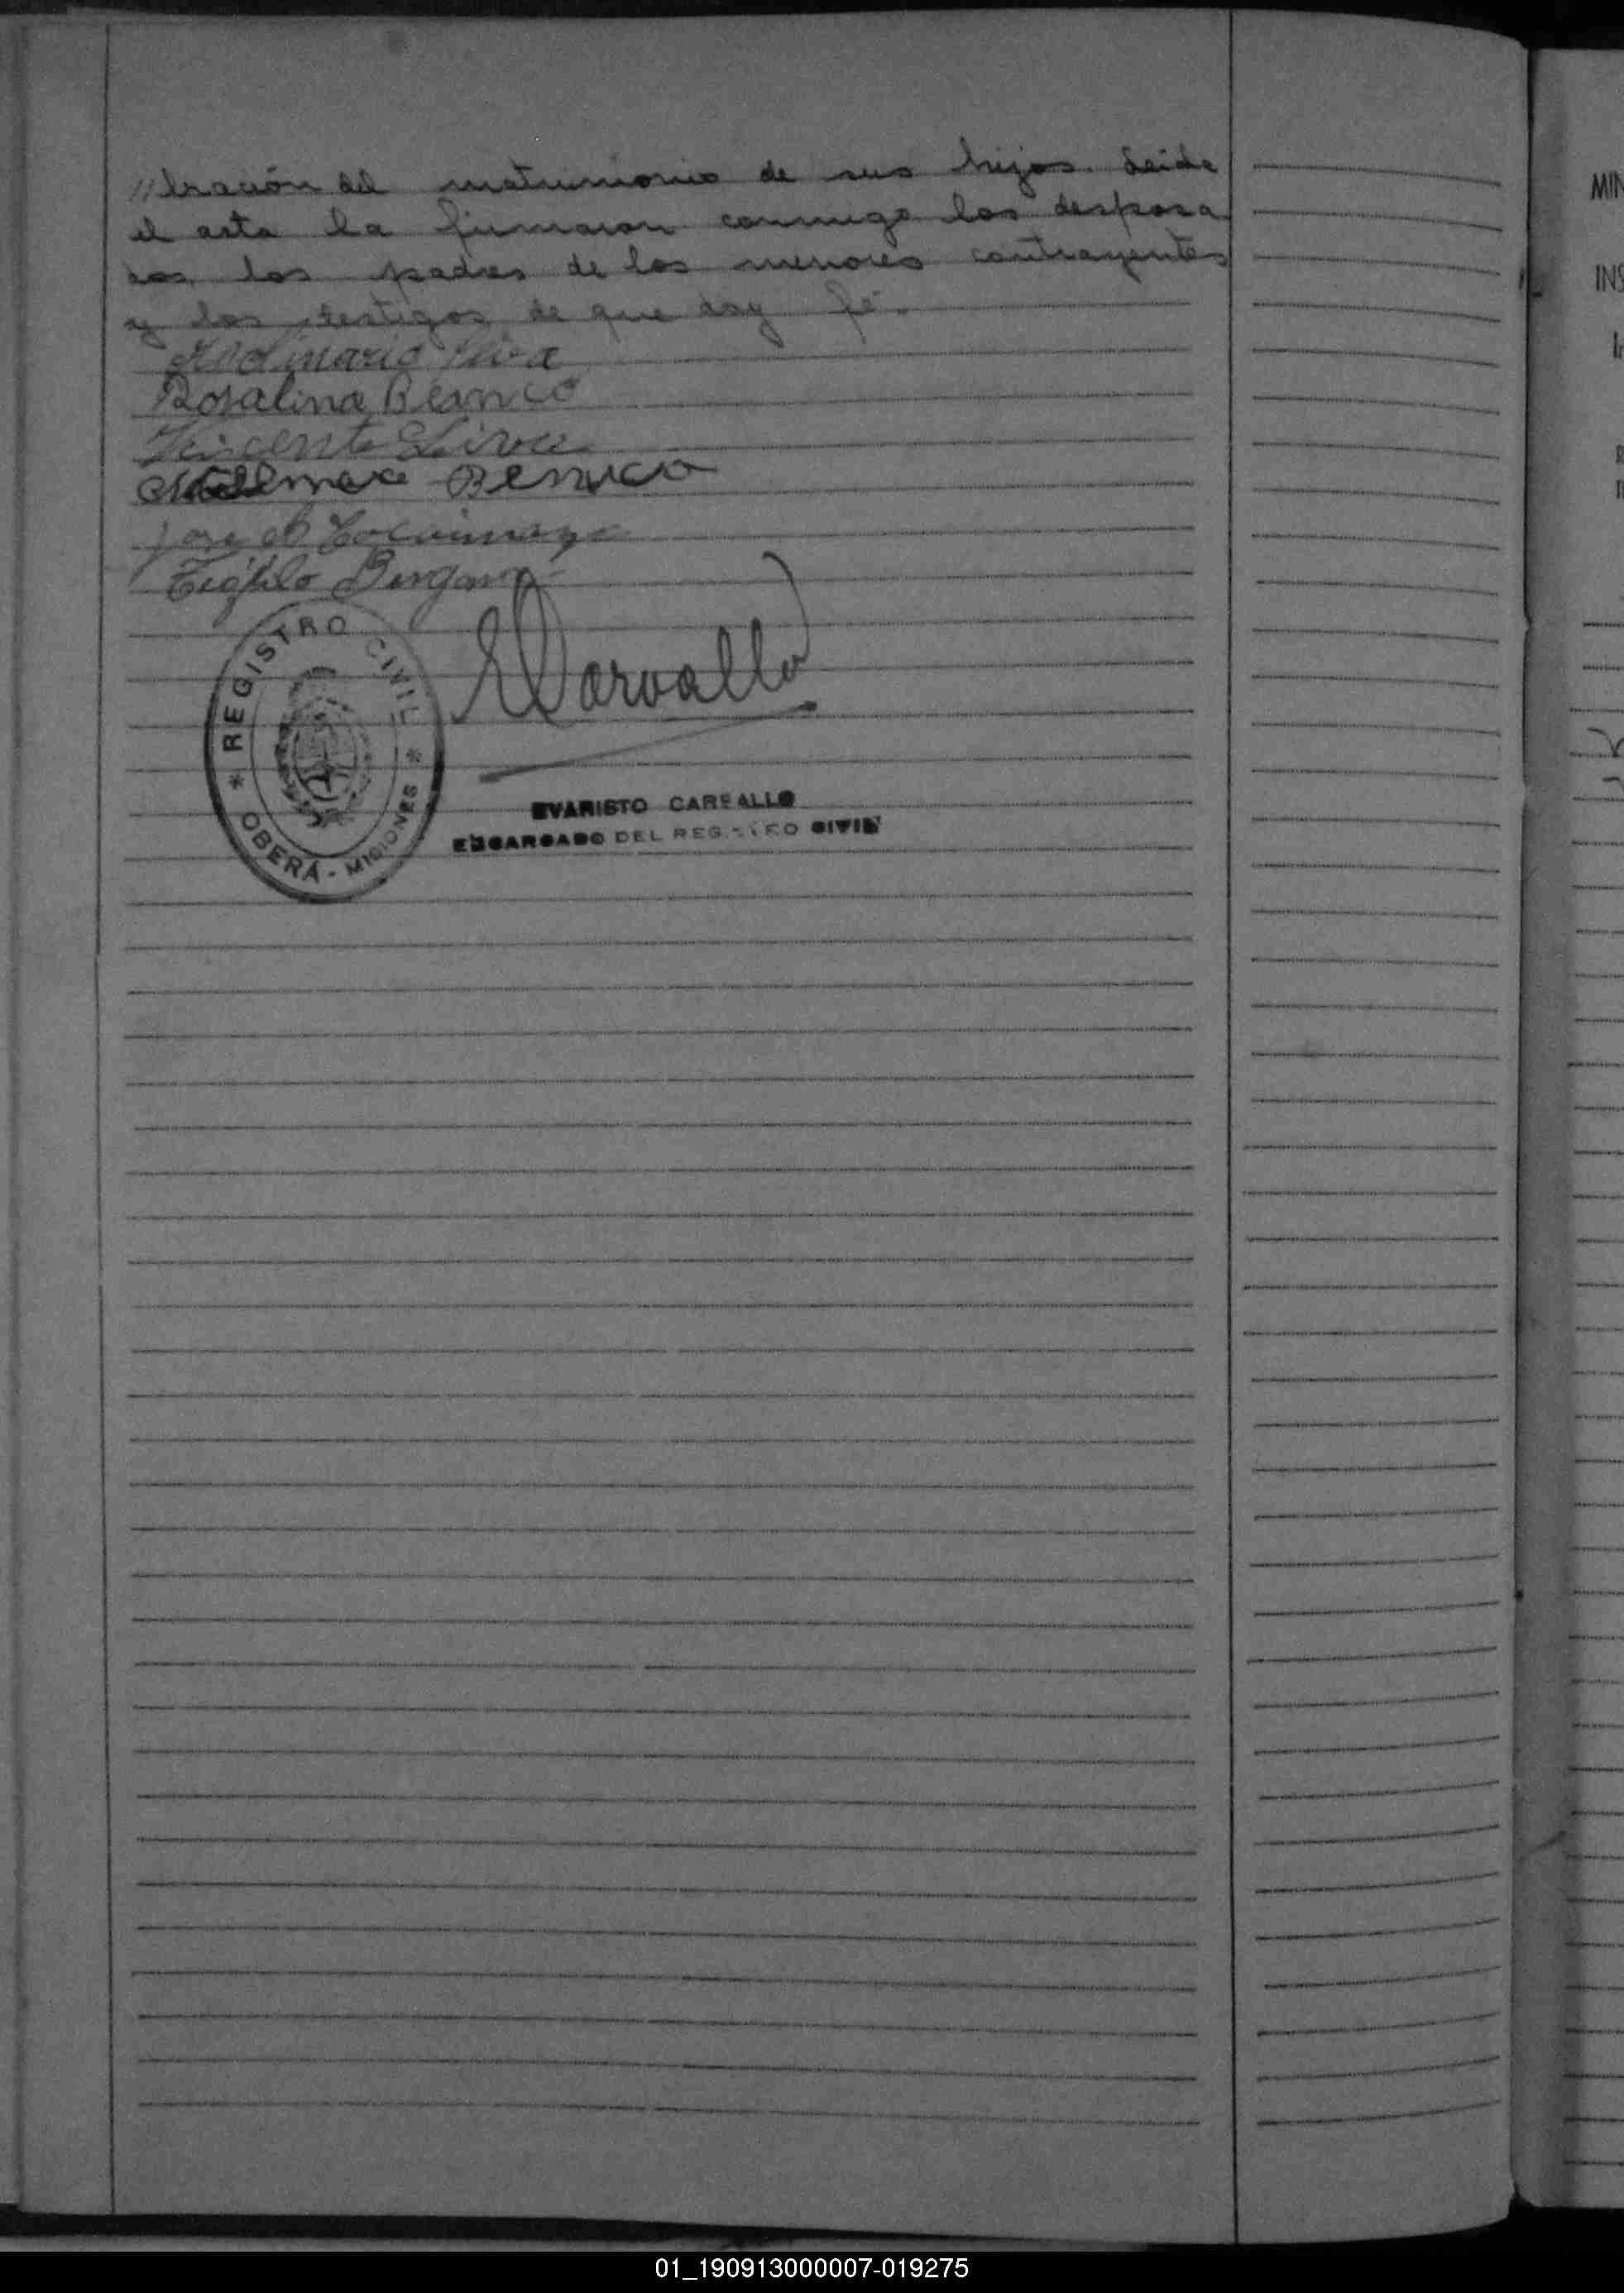 //bración del matrimonio de sus hijos. Leida
el acta la firmaron conmigo los desposa
dos, los padres de los menores contrayentes
y los testigos de que doy fé.
Silva
Rosalina Blanco
Vicente Silva
Blanco
Jose
Teófilo
Carvallo
REGISTRO CIVIL
* OBERÁ - MISIONES *
EVARISTO CARVALLO
ENCARGADO DEL REGISTRO CIVIL
MIN
INS
01_190913000007-019275